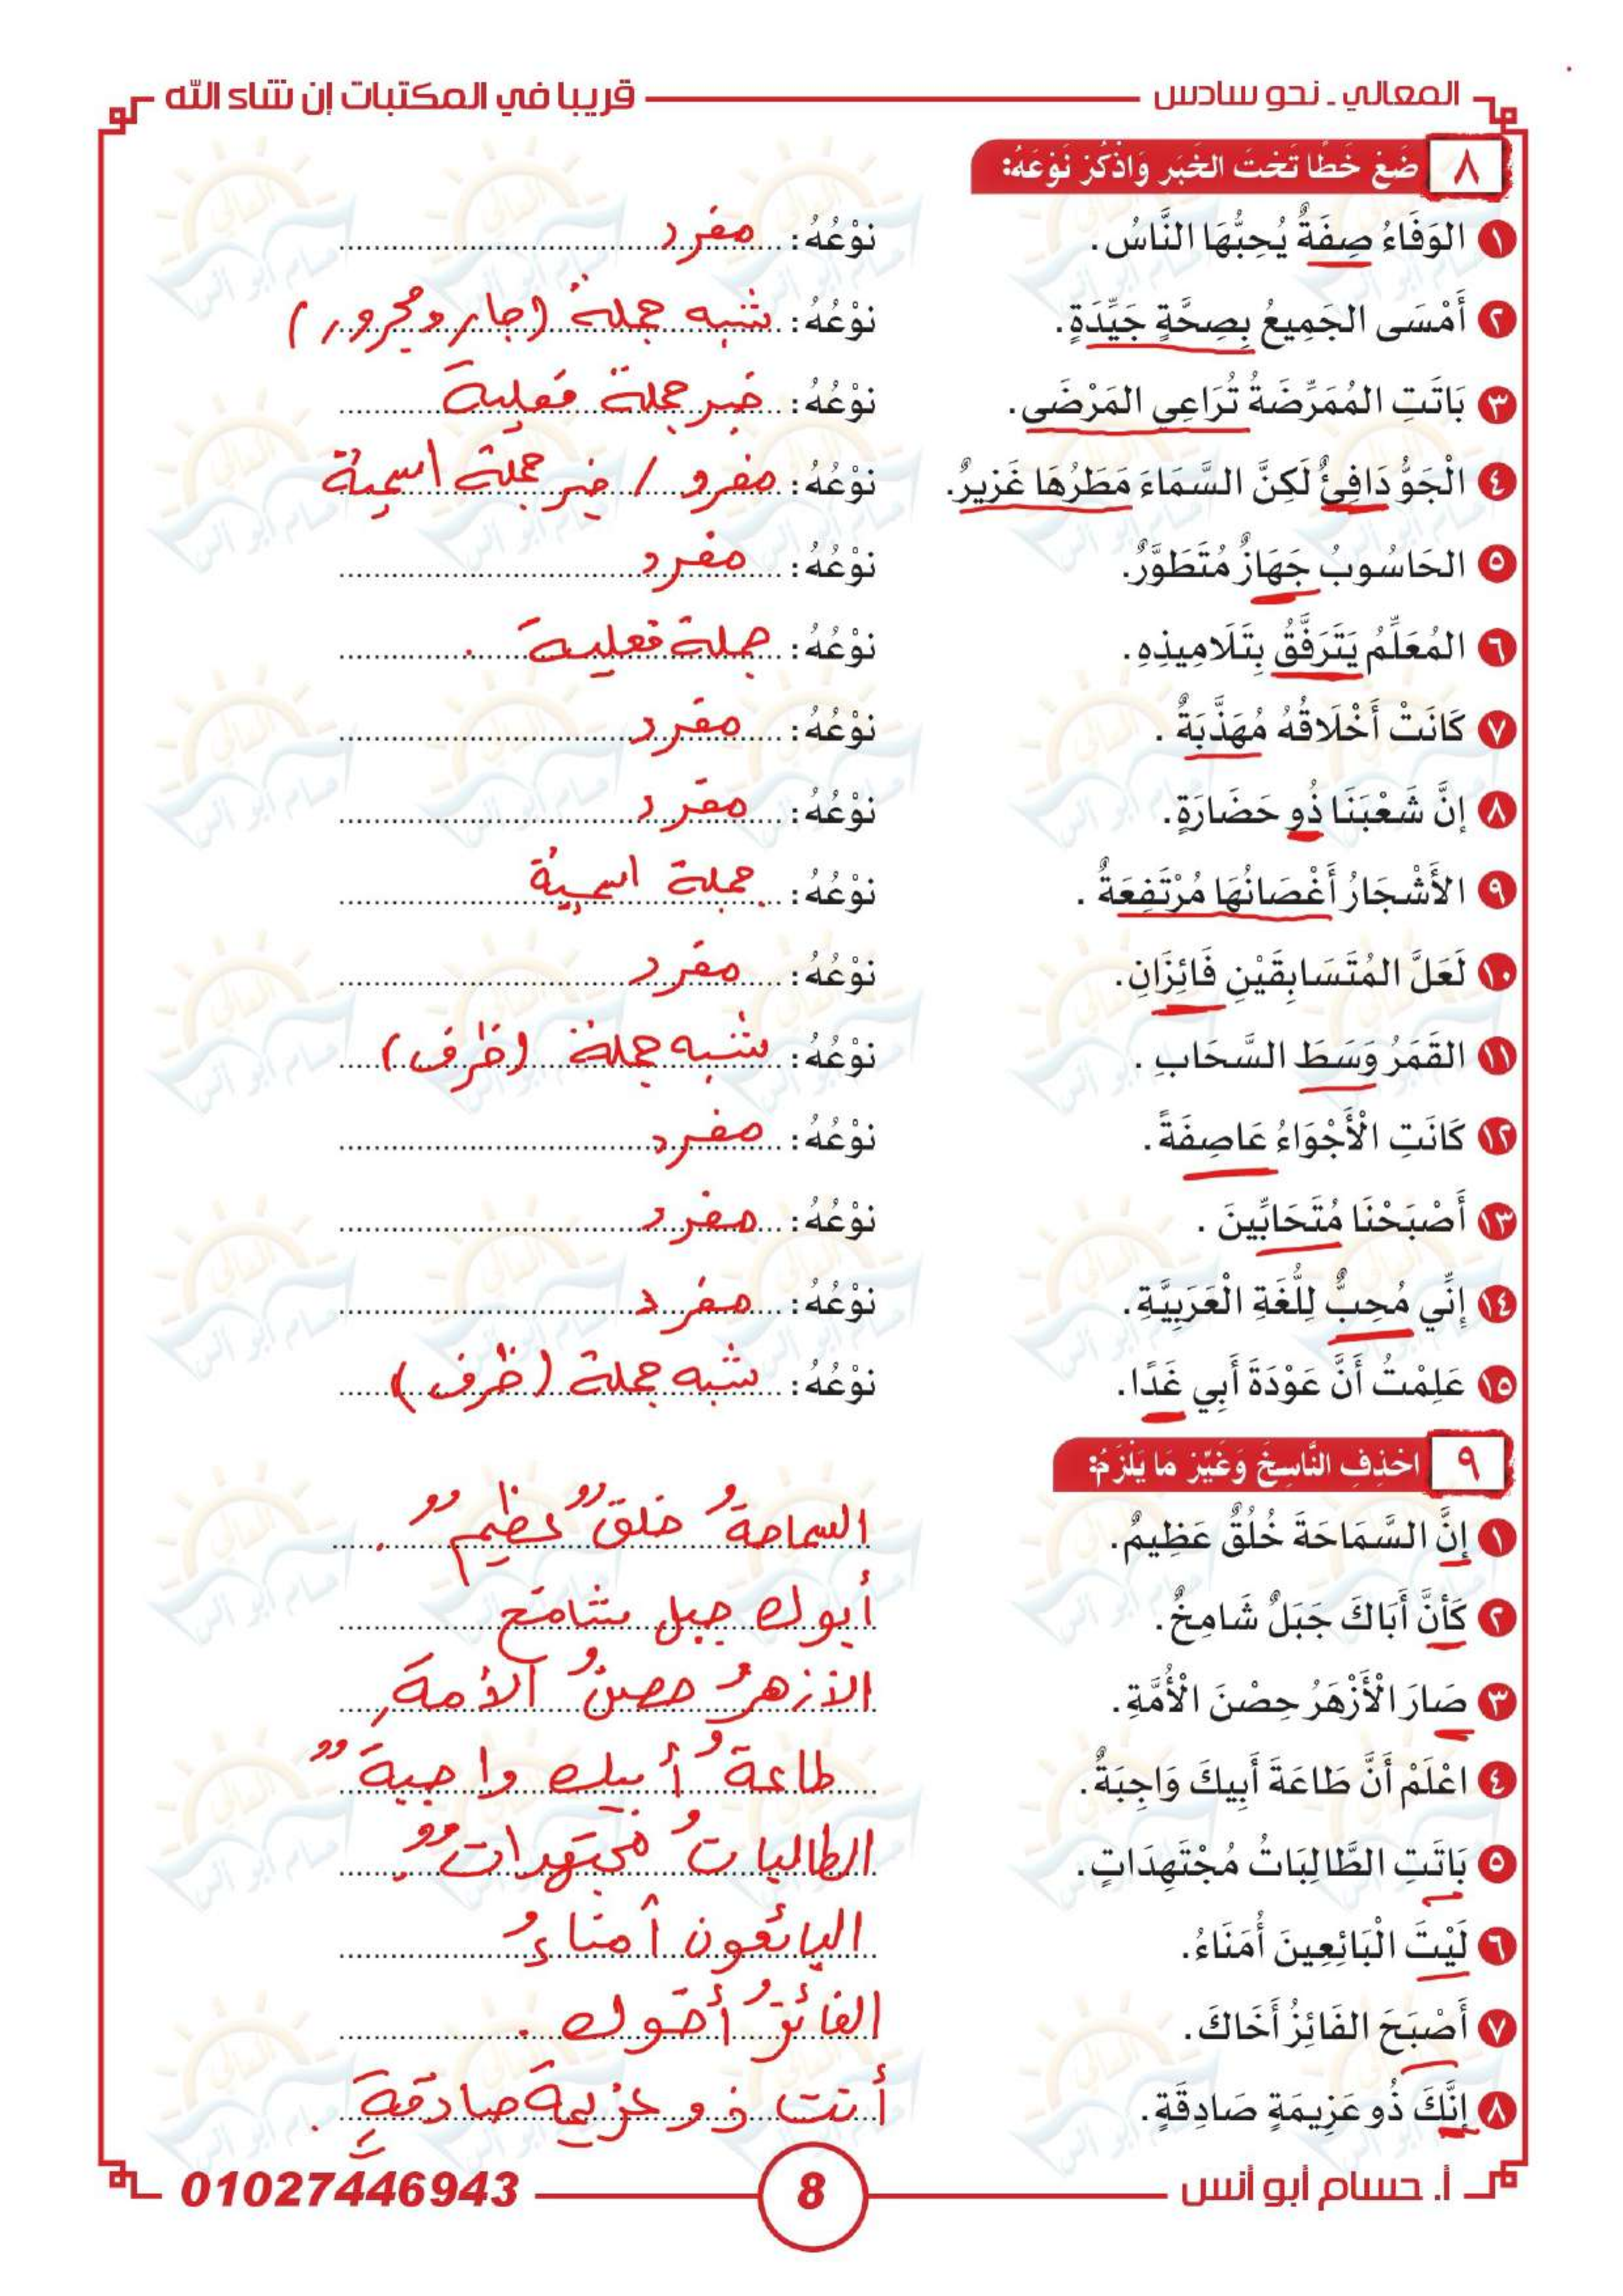 المعالي ـ نحو سادس قريبا في المكتبات إن شاء الله
٨ ضَعْ خَطًا تَحْتَ الخَبَرِ وَاذْكُرْ نَوْعَهُ:
١ الوَفَاءُ صِفَةٌ يُحِبُّهَا النَّاسُ. نَوْعُهُ: مفرد
٢ أَمْسَى الجَمِيعُ بِصِحَّةٍ جَيِّدَةٍ. نَوْعُهُ: شبه جملة (جار ومجرور)
٣ بَاتَتِ المُمَرِّضَةُ تُرَاعِي المَرْضَى. نَوْعُهُ: خبر جملة فعلية
٤ الْجَوُّ دَافِئٌ لَكِنَّ السَّمَاءَ مَطَرُهَا غَزِيرٌ. نَوْعُهُ: مفرد / خبر جملة اسمية
٥ الحَاسُوبُ جَهَازٌ مُتَطَوَّرٌ. نَوْعُهُ: مفرد
٦ المُعَلِّمُ يَتَرَفَّقُ بِتَلَامِيذِهِ. نَوْعُهُ: جملة فعلية .
٧ كَانَتْ أَخْلَاقُهُ مُهَذَّبَةٌ . نَوْعُهُ: مفرد
٨ إِنَّ شَعْبَنَا ذُو حَضَارَةٍ. نَوْعُهُ: مفرد
٩ الأَشْجَارُ أَغْصَانُهَا مُرْتَفِعَةٌ . نَوْعُهُ: جملة اسمية
١٠ لَعَلَّ المُتَسَابِقَيْنِ فَائِزَانِ. نَوْعُهُ: مفرد
١١ القَمَرُ وَسَطَ السَّحَابِ . نَوْعُهُ: شبه جملة (ظرف)
١٢ كَانَتِ الْأَجْوَاءُ عَاصِفَةً. نَوْعُهُ: مفرد
١٣ أَصْبَحْنَا مُتَحَابِّينَ . نَوْعُهُ: مفرد
١٤ إِنِّي مُحِبٌّ لِلُّغَةِ الْعَرَبِيَّةِ. نَوْعُهُ: مفرد
١٥ عَلِمْتُ أَنَّ عَوْدَةَ أَبِي غَدًا. نَوْعُهُ: شبه جملة (ظرف)
٩ احْذِفِ النَّاسِخَ وَغَيِّرْ مَا يَلْزَمُ:
١ إِنَّ السَّمَاحَةَ خُلُقٌ عَظِيمٌ. السماحةُ خلقٌ عظيمٌ .
٢ كَأَنَّ أَبَاكَ جَبَلٌ شَامِخٌ. أبوك جبل شامخ
٣ صَارَ الْأَزْهَرُ حِصْنَ الْأُمَّةِ. الأزهرُ حصنُ الأمةِ
٤ اعْلَمْ أَنَّ طَاعَةَ أَبِيكَ وَاجِبَةٌ. طاعةُ أبيك واجبةٌ
٥ بَاتَتِ الطَّالِبَاتُ مُجْتَهِدَاتٍ. الطالباتُ مجتهداتٌ.
٦ لَيْتَ الْبَائِعِينَ أُمَنَاءُ. البائعون أمناءُ
٧ أَصْبَحَ الفَائِزُ أَخَاكَ. الفائزُ أخوك .
٨ إِنَّكَ ذُو عَزِيمَةٍ صَادِقَةٍ. أنت ذو عزيمة صادقةٍ .
أ. حسام أبو أنس 8 01027446943